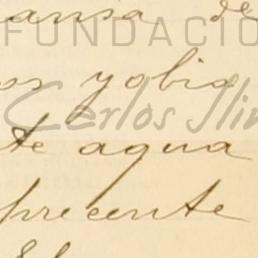 ansa de
FUNDACIÓ
os y obio
Carlos Ilin
te agua
precente